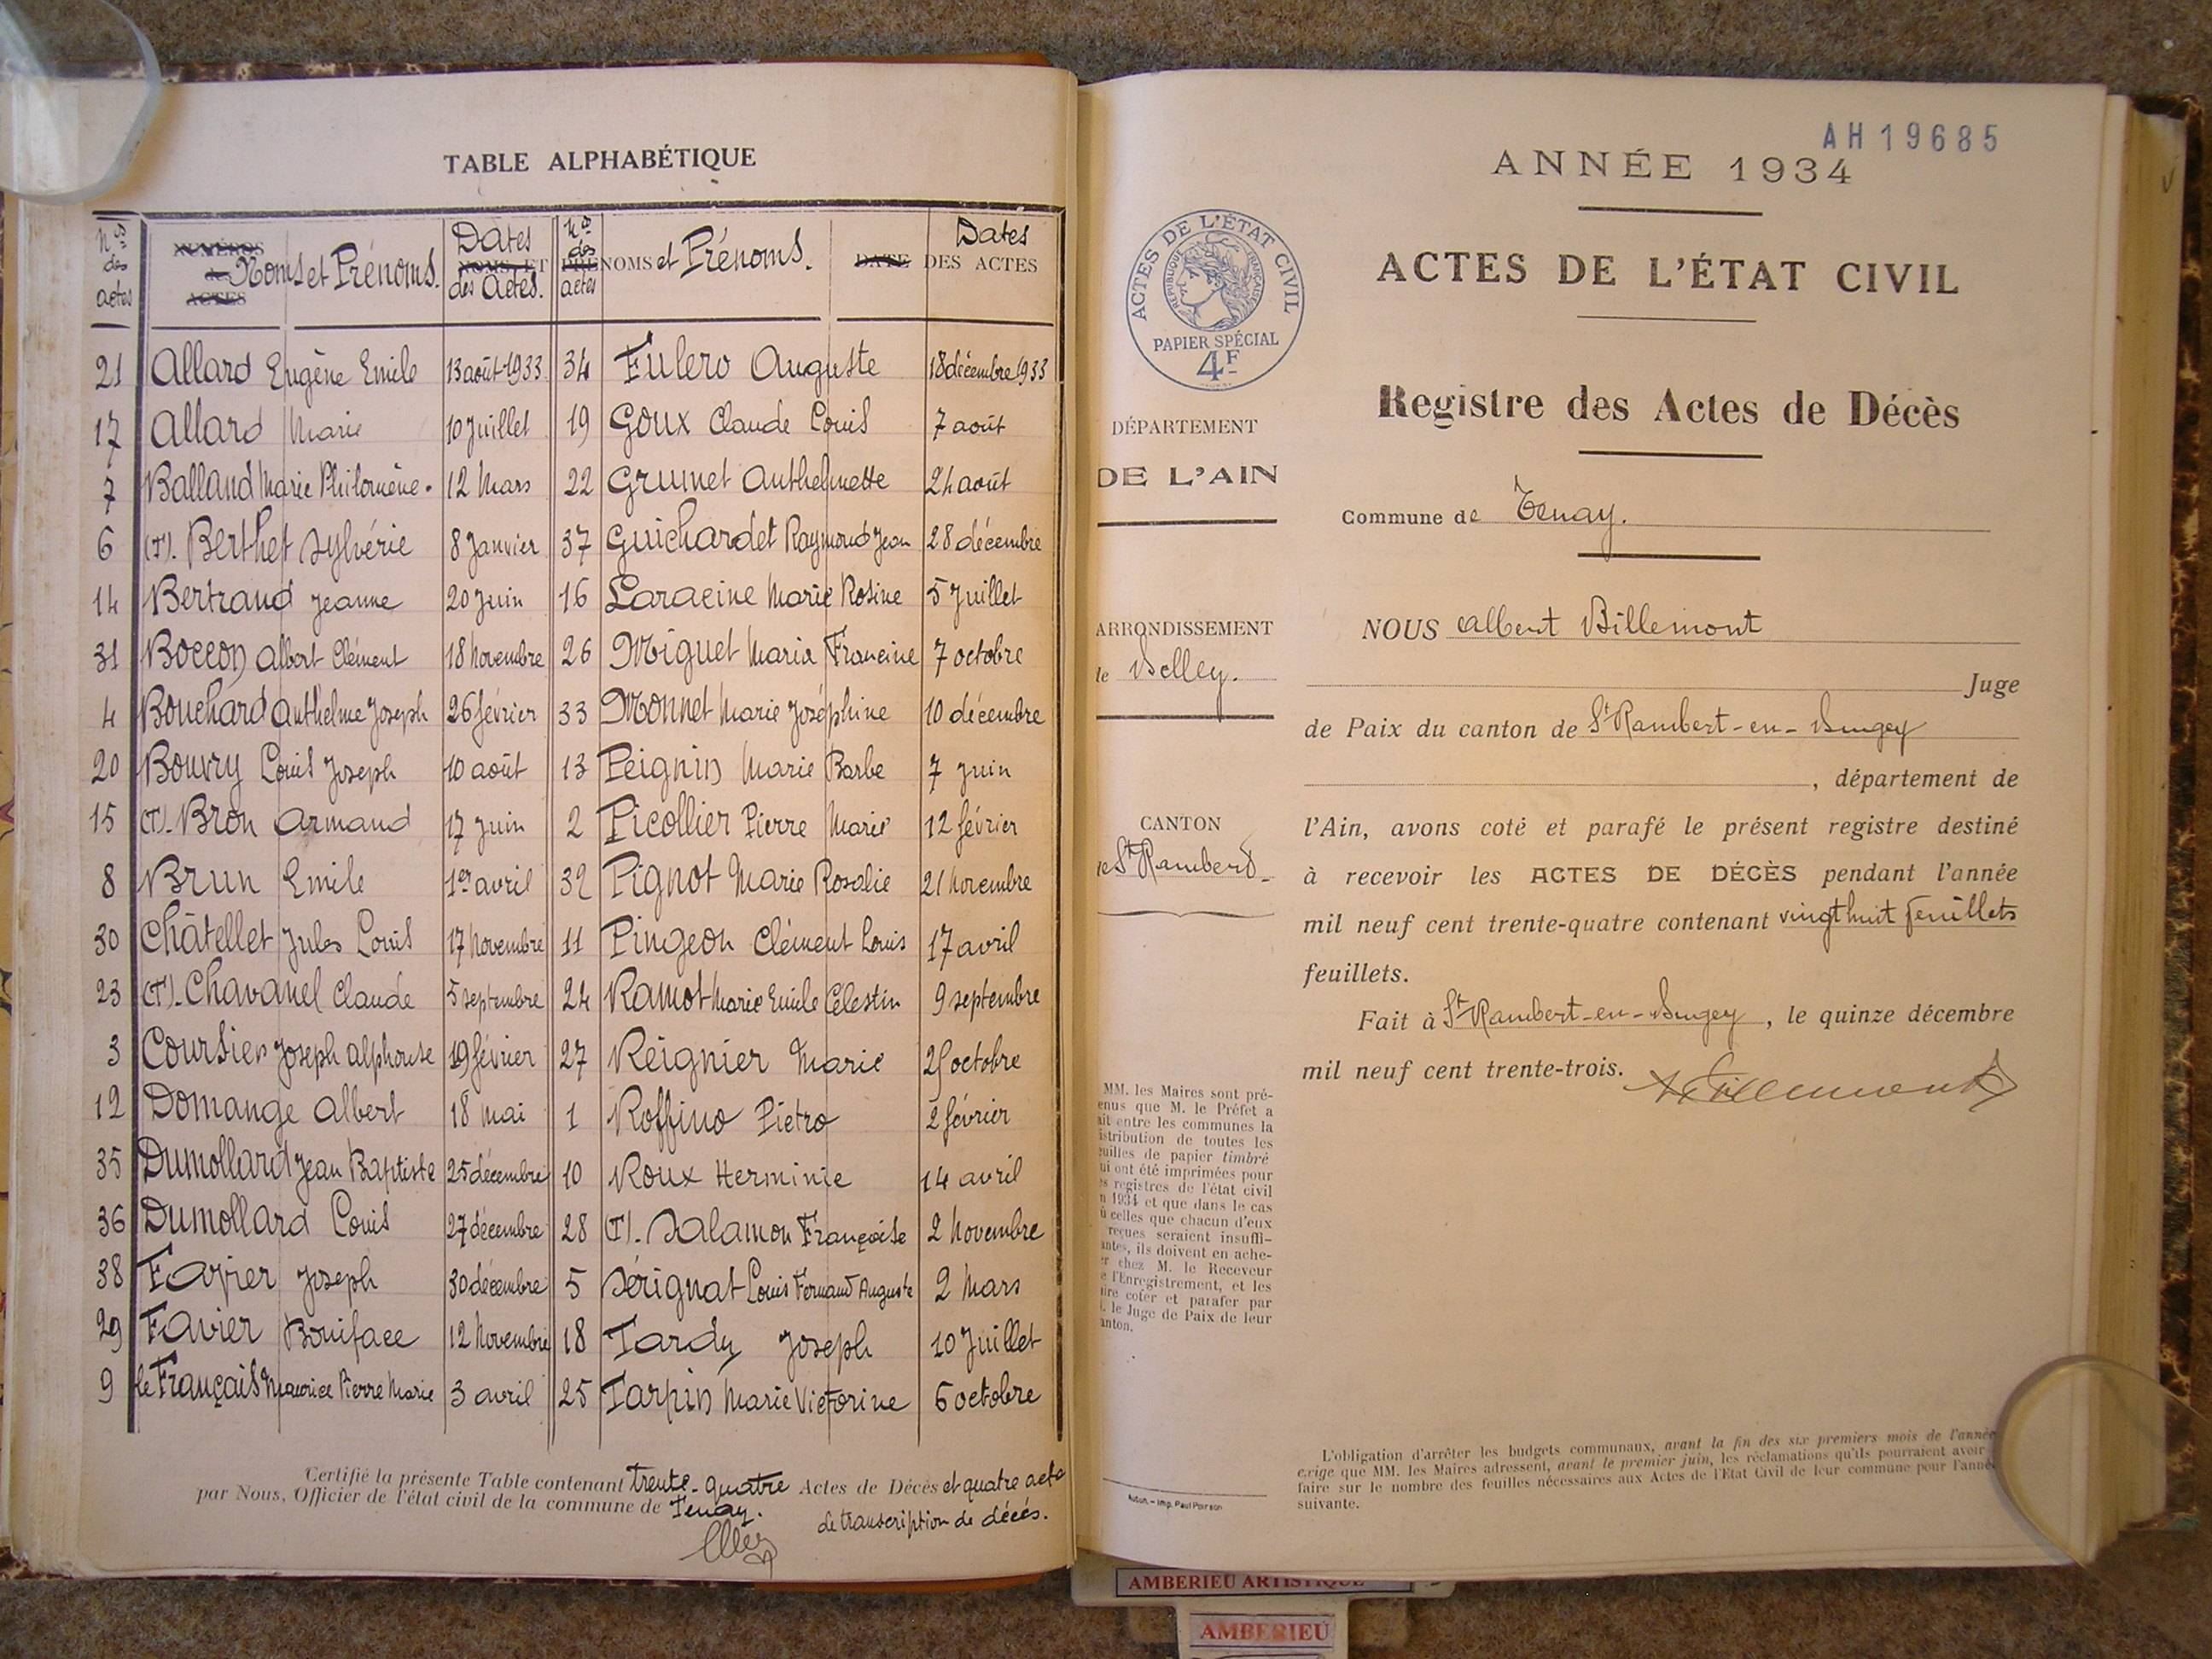 TABLE ALPHABÉTIQUE
Nos des actes
NUMÉROS de ACTES
Noms et Prénoms.
NOMS ET PRÉNOMS
Dates des Actes.
Nos des actes
et Prénoms.
DATE DES ACTES
Dates
21 Allard Eugène Emile 13 août 1933
17 Allard Marie 10 Juillet
7 Balland Marie Philomène. 12 Mars
6 (T). Berthet Sylvérie 8 Janvier
14 Bertrand Jeanne 20 Juin
31 Boccon Albert Clément 18 Novembre
4 Bouchard Anthelme Joseph 26 février
20 Bouvry Louis Joseph 10 août
15 (T). Bron Armand 17 Juin
8 Brun Emile 1er avril
30 Châtellet Jules Louis 17 Novembre
23 (T). Chavanel Claude 5 septembre
3 Coursier Joseph Alphonse 19 février
12 Domange Albert 18 Mai
35 Dumollard Jean Baptiste 25 décembre
36 Dumollard Louis 27 décembre
38 Favier Joseph 30 décembre
29 Favier Boniface 12 Novembre
9 le Français Maurice Pierre Marie 3 avril
34 Fulero Auguste 18 décembre 1933
19 Goux Claude Louis 7 août
22 Grumet Anthelmette 24 août
37 Guichardet Raymond Jean 28 décembre
16 Laracine Marie Rosine 5 Juillet
26 Miguet Maria Francine 7 octobre
33 Monnet Marie Joséphine 10 décembre
13 Peignin Marie Barbe 7 Juin
2 Picollier Pierre Marie 12 février
32 Pignot Marie Rosalie 21 Novembre
11 Pingeon Clément Louis 17 avril
24 Ramot Marie Emile Célestin 9 septembre
27 Reignier Marie octobre
1 Roffino Pietro 2 février
10 Roux Herminie 14 avril
28 (T). Salamon Françoise 2 Novembre
5 Sérignat Louis Fernand Auguste 2 Mars
18 Tardy Joseph 10 Juillet
25 Tarpin Marie Victorine 6 octobre
Certifié la présente Table contenant trente-quatre Actes de Décès et quatre acte
par Nous, Officier de l'état civil de la commune de Tenay. de transcription de décés.
AH 19685
ANNÉE 1934
ACTES DE L'ÉTAT CIVIL
Registre des Actes de Décès
Commune de Tenay.
NOUS Albert Billemont
Juge
de Paix du canton de St Rambert-en-Bugey
, département de
l'Ain, avons coté et parafé le présent registre destiné
à recevoir les ACTES DE DÉCÈS pendant l'année
mil neuf cent trente-quatre contenant vingt huit feuillets
feuillets.
Fait à St Rambert-en-Bugey, le quinze décembre
mil neuf cent trente-trois.
ABillemont
ACTES DE L'ÉTAT CIVIL
RÉPUBLIQUE FRANÇAISE
PAPIER SPÉCIAL
4F
DÉPARTEMENT
DE L'AIN
ARRONDISSEMENT
de Belley.
CANTON
de St Rambert
MM. les Maires sont pré-
enus que M. le Préfet a
ait entre les communes la
istribution de toutes les
euilles de papier timbré
ui ont été imprimées pour
es registres de l'état civil
n 1934 et que dans le cas
ù celles que chacun d'eux
reçues seraient insuffi-
antes, ils doivent en ache-
er chez M. le Receveur
e l'Enregistrement, et les
aire coter et parafer par
. le Juge de Paix de leur
anton.
Autun. - Imp. Paul Poirson
L'obligation d'arrêter les budgets communaux, avant la fin des six premiers mois de l'année
exige que MM. les Maires adressent, avant le premier juin, les réclamations qu'ils pourraient avoir
faire sur le nombre des feuilles nécessaires aux Actes de l'État Civil de leur commune pour l'année
suivante.
AMBERIEU ARTISTIQUE
AMBERIEU